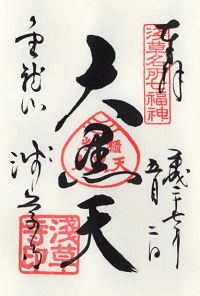 奉拝
浅草名所七福神
平成二十七年
五月二日
大黒天
金龍山
浅草寺
浅草寺印